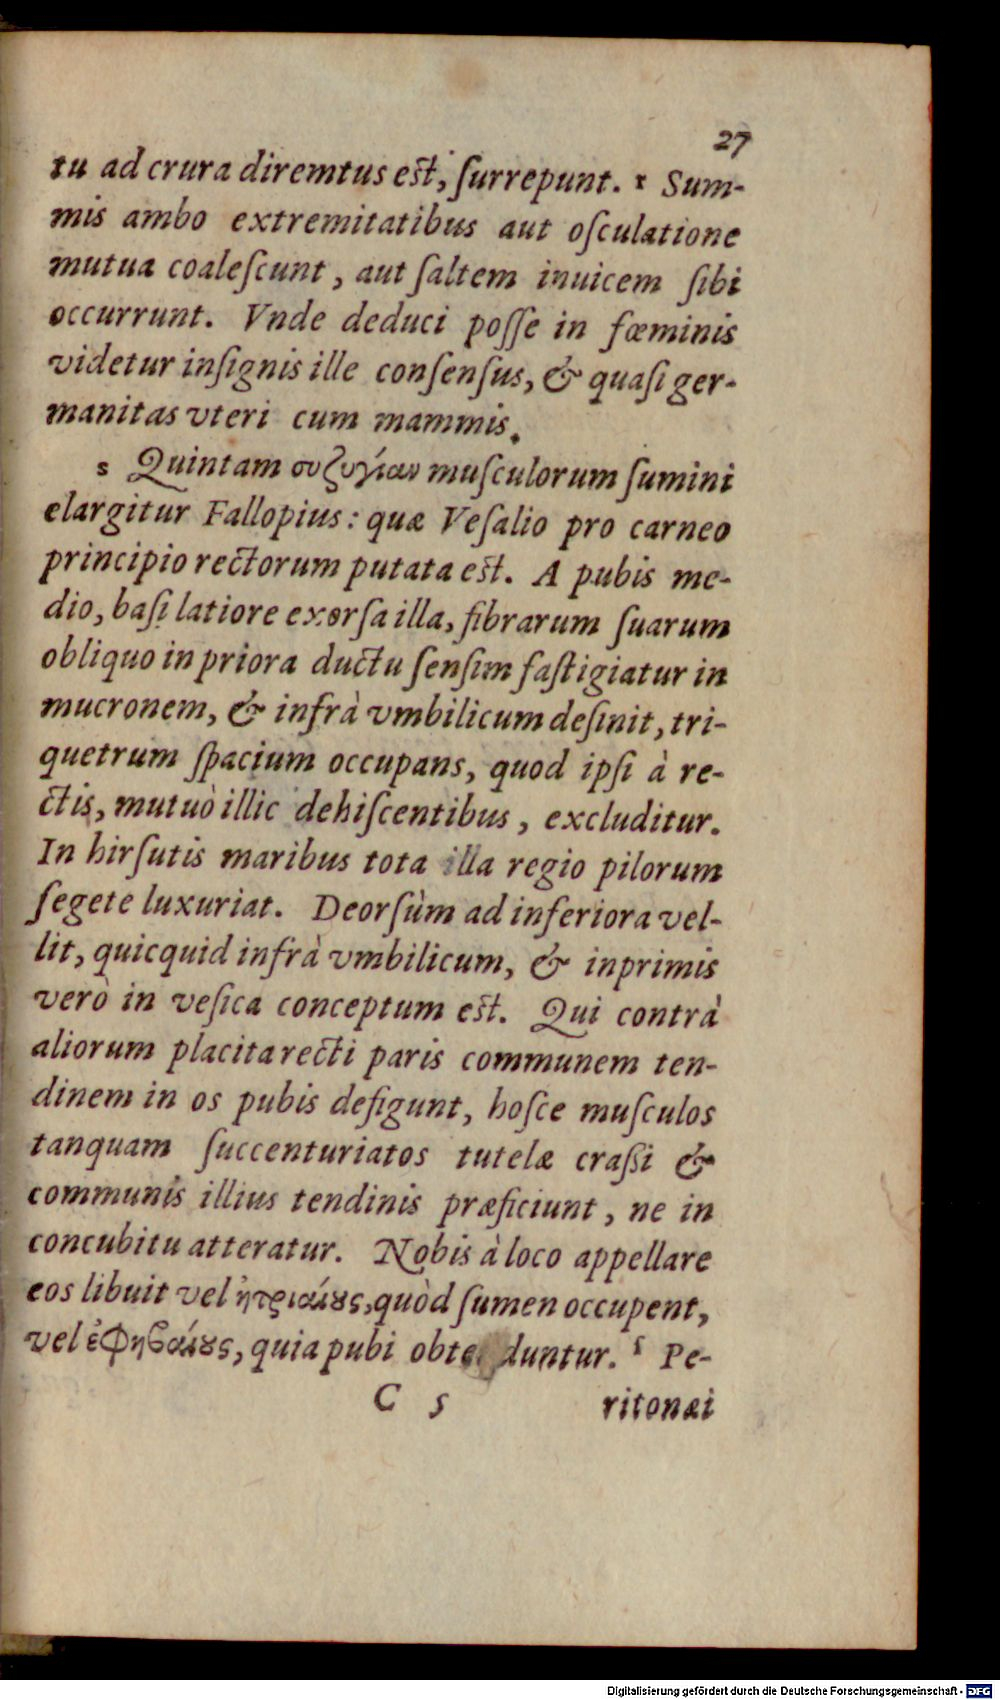 27
tu ad crura diremtus est, ſurrepunt. r Sum-
mis ambo extremitatibus aut oſculatione
mutua coaleſcunt, aut ſaltem inuicem ſibi
occurrunt. Vnde deduci poſſe in fœminis
videtur inſignis ille conſenſus, & quaſi ger-
manitas vteri cum mammis.
s Quintam συζυγίαν muſculorum ſumini
elargitur Fallopius: quæ Veſalio pro carneo
principio rectorum putata est. A pubis me-
dio, baſi latiore exorſa illa, fibrarum ſuarum
obliquo in priora ductu ſenſim faſtigiatur in
mucronem, & infrà vmbilicum deſinit, tri-
quetrum ſpacium occupans, quod ipſi à re-
ctis, mutuò illic dehiſcentibus, excluditur.
In hirſutis maribus tota illa regio pilorum
ſegete luxuriat. Deorſùm ad inferiora vel-
lit, quicquid infrà vmbilicum, & inprimis
verò in veſica conceptum est. Qui contrà
aliorum placita recti paris communem ten-
dinem in os pubis defigunt, hoſce muſculos
tanquam ſuccenturiatos tutelæ craßi &
communis illius tendinis præficiunt, ne in
concubitu atteratur. Nobis à loco appellare
eos libuit vel ἠτριαίȣς, quòd ſumen occupent,
vel ἐφηϐαίȣς, quia pubi obtenduntur. ſ Pe-
C 5 ritonæi
Digitalisierung gefördert durch die Deutsche Forschungsgemeinschaft - DFG